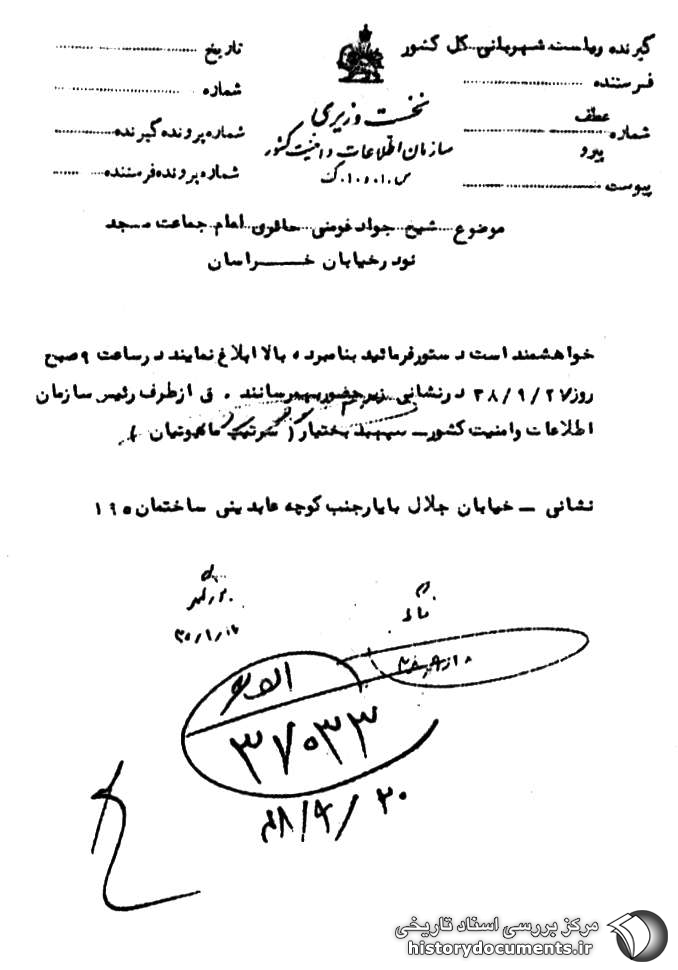 گیرنده ریاست شهربانی کل کشور
فرستنده
عطف
شماره
پیرو
پیوست
نخست وزیری
سازمان اطلاعات و امنیت کشور
تاریخ
شماره
شماره پرونده گیرنده
شماره پرونده فرستنده
موضوع شیخ جواد فومنی حائری امام جماعت مسجد
نو در خیابان خراسان
خواهشمند است دستور فرمائید بنامبرده بالا ابلاغ نمایند در ساعت ۹ صبح
روز ۳۸/۹/۲۷ در نشانی زیر حضور بهمرسانند . ق از طرف رئیس سازمان
اطلاعات و امنیت کشور – سپهبد بختیار ( سرتیپ
نشانی – خیابان جلال بایار جنب کوچه عابدینی ساختمان ۱۹۵
۳۷۰۳۳
۳۸/۹/۲۰
مرکز بررسی اسناد تاریخی
historydocuments.ir